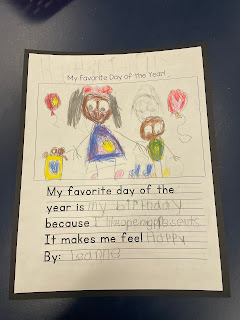 My Favorite Day of the Year!
My favorite day of the
year is my birthday
because I like opening presents
It makes me feel Happy
By: Leanne